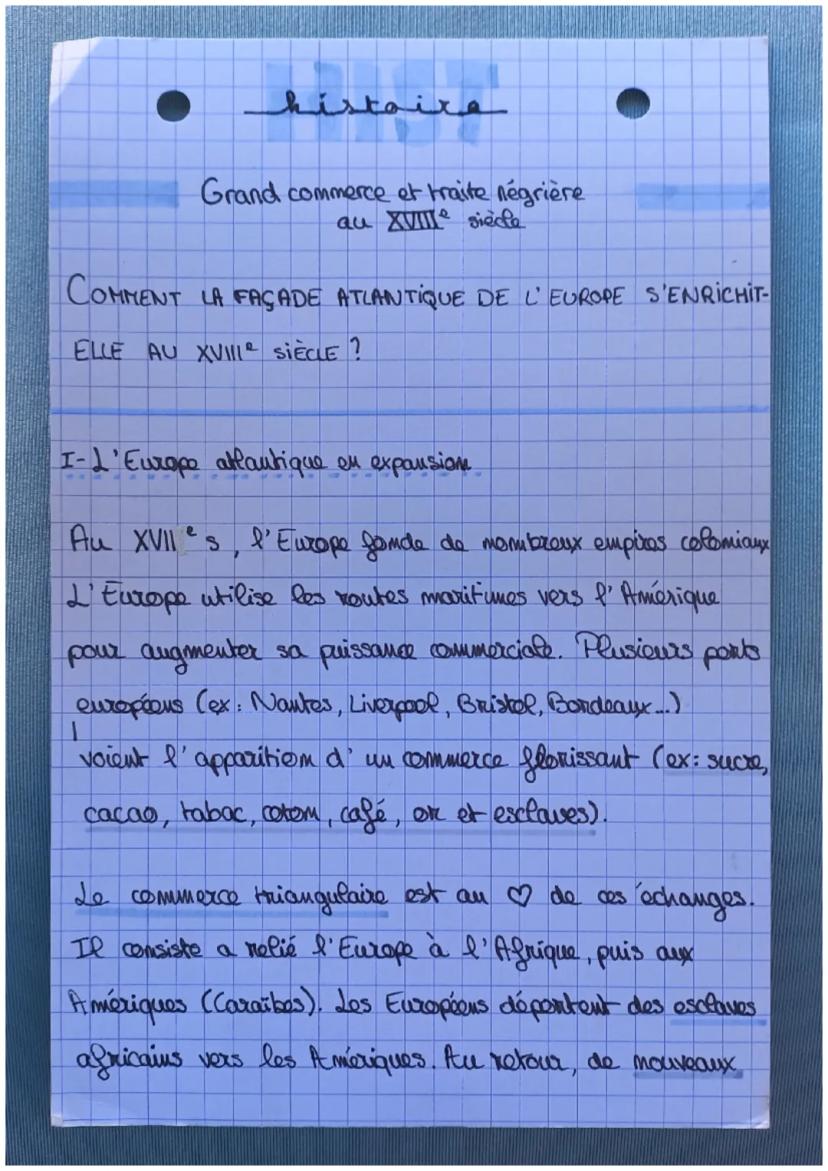 HIST
histoire
Grand commerce et traite négrière
au XVIIIe siècle
COMMENT LA FAÇADE ATLANTIQUE DE L'EUROPE S'ENRICHIT-
ELLE AU XVIIIe SIÈCLE ?
I- L'Europe atlantique en expansion
Au XVIIe s, l'Europe fonde de nombreux empires coloniaux
L'Europe utilise les routes maritimes vers l'Amérique
pour augmenter sa puissance commerciale. Plusieurs ports
européens (ex: Nantes, Liverpool, Bristol, Bordeaux...)
voient l'apparition d'un commerce florissant (ex: sucre,
cacao, tabac, coton, café, or et esclaves).
Le commerce triangulaire est au ♡ de ces échanges.
Il consiste a relié l'Europe à l'Afrique, puis aux
Amériques (Caraïbes). Les Européens déportent des esclaves
africains vers les Amériques. Au retour, de nouveaux